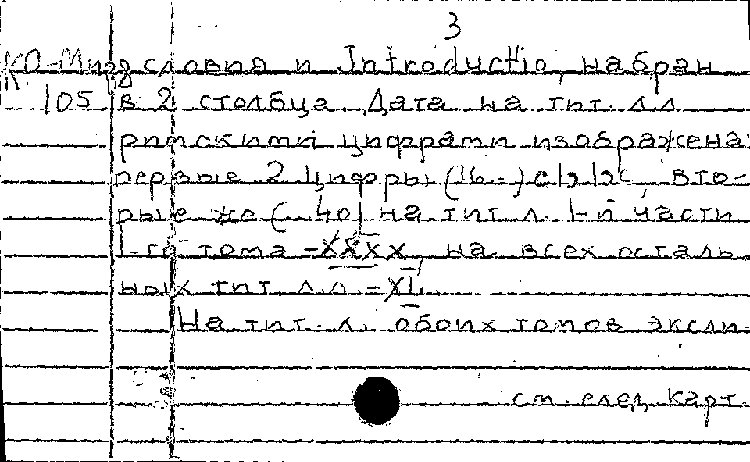 3
КО-Миг словия и Introductio, набран
105 в 2 столбца. Дата на тит. л.л.
римскими цифрами изображена:
первые 2 цифры (16..) cIɔ Iɔc, вто-
рые же (..40) на тит. л. 1-й части
1-го тома - XXXX, на всех осталь
ных тит. л.л. = XL.
На тит. л. обоих томов эксли-
см. след. карт.